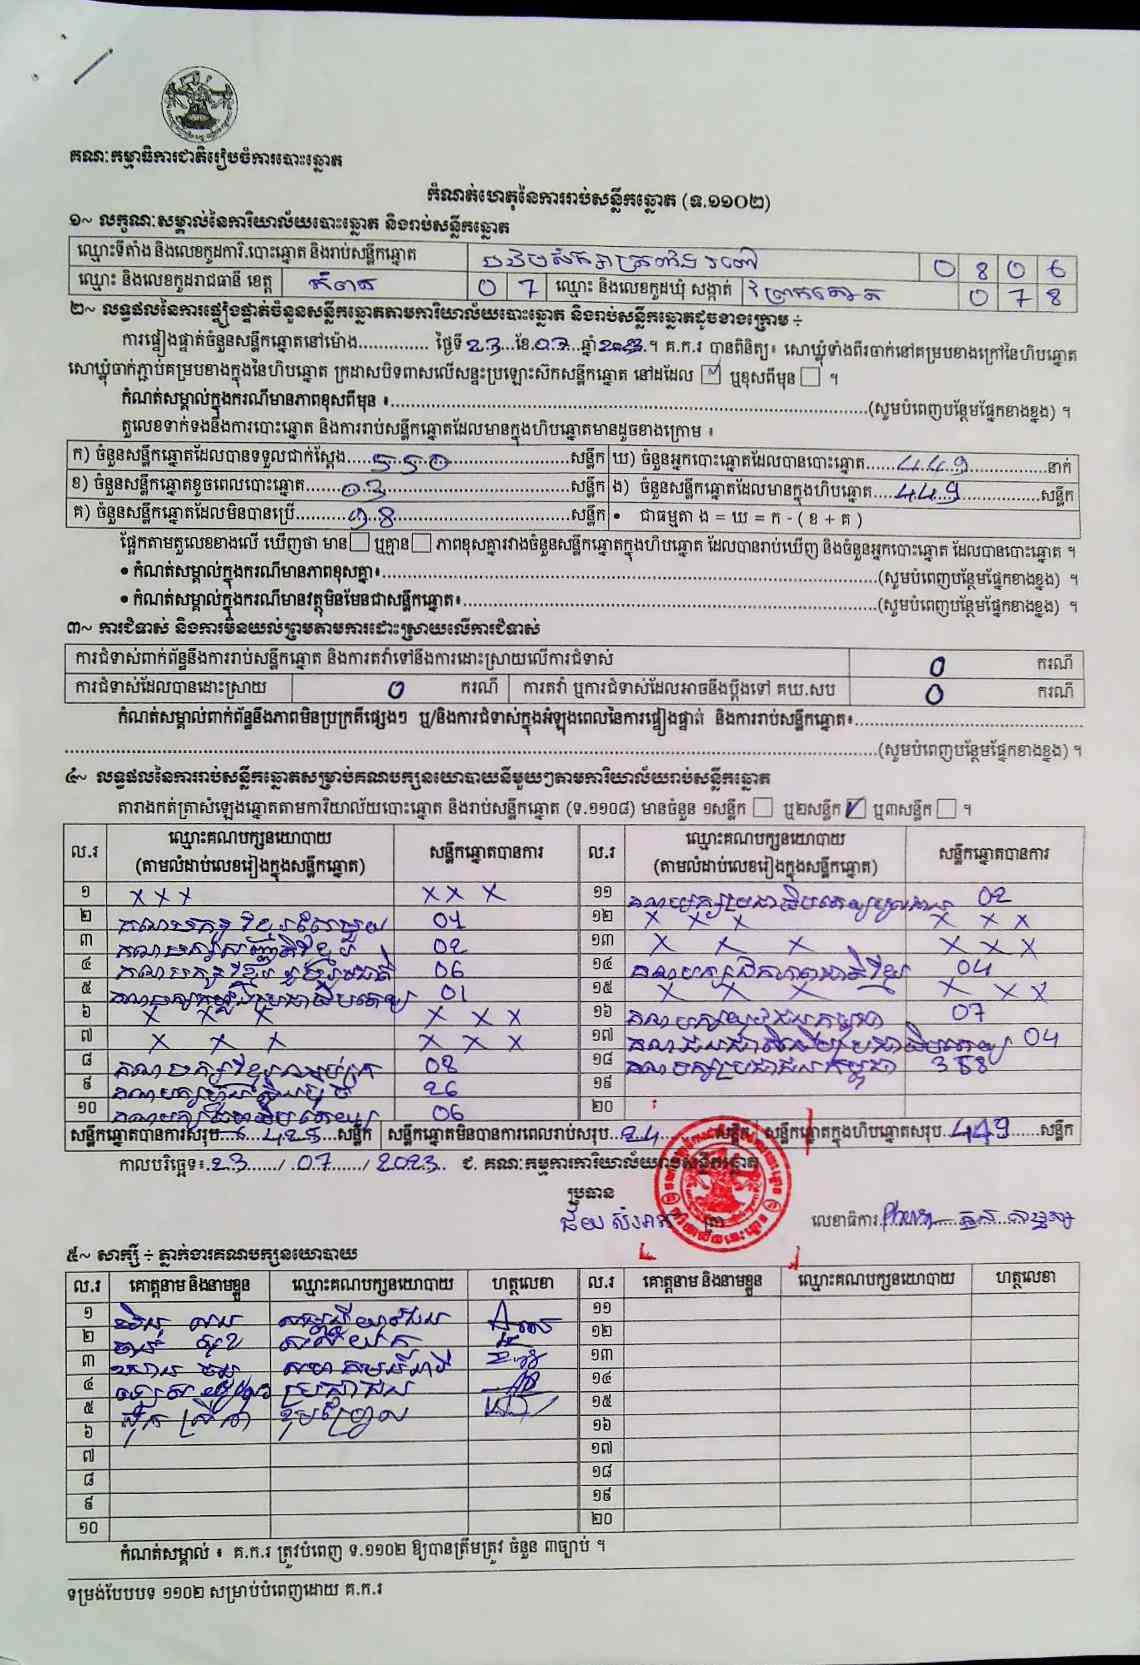 គណៈកម្មាធិការជាតិរៀបចំការបោះឆ្នោត
កំណត់ហេតុនៃការរាប់សន្លឹកឆ្នោត (ទ.១១០២)
១~ លក្ខណៈសម្គាល់នៃការិយាល័យបោះឆ្នោត និងរាប់សន្លឹកឆ្នោត
ឈ្មោះទីតាំង និងលេខកូដការិ.បោះឆ្នោត និងរាប់សន្លឹកឆ្នោត 0 8 0 6
ឈ្មោះ និងលេខកូដរាជធានី ខេត្ត កំពត 0 7 ឈ្មោះ និងលេខកូដឃុំ សង្កាត់ 0 7 8
២~ លទ្ធផលនៃការផ្ទៀងផ្ទាត់ចំនួនសន្លឹកឆ្នោតតាមការិយាល័យបោះឆ្នោត និងរាប់សន្លឹកឆ្នោតដូចខាងក្រោម ÷
ការផ្ទៀងផ្ទាត់ចំនួនសន្លឹកឆ្នោតនៅម៉ោង.............. ថ្ងៃទី23...ខែ.07...ឆ្នាំ2023។ គ.ក.រ បានពិនិត្យ៖ សោឃ្លុំទាំងពីរចាក់នៅគម្របខាងក្រៅនៃហិបឆ្នោត
សោឃ្លុំចាក់ភ្ជាប់គម្របខាងក្នុងនៃហិបឆ្នោត ក្រដាសបិទពាសលើសន្ទះប្រឡោះស៊កសន្លឹកឆ្នោត នៅដដែល ☑ ឬខុសពីមុន ☐ ។
កំណត់សម្គាល់ក្នុងករណីមានភាពខុសពីមុន ៖..........(សូមបំពេញបន្ថែមផ្នែកខាងខ្នង) ។
តួលេខទាក់ទងនឹងការបោះឆ្នោត និងការរាប់សន្លឹកឆ្នោតដែលមានក្នុងហិបឆ្នោតមានដូចខាងក្រោម ៖
ក) ចំនួនសន្លឹកឆ្នោតដែលបានទទួលជាក់ស្តែង....550....សន្លឹក ឃ) ចំនួនអ្នកបោះឆ្នោតដែលបានបោះឆ្នោត....449....នាក់
ខ) ចំនួនសន្លឹកឆ្នោតខូចពេលបោះឆ្នោត....03....សន្លឹក ង) ចំនួនសន្លឹកឆ្នោតដែលមានក្នុងហិបឆ្នោត....449....សន្លឹក
គ) ចំនួនសន្លឹកឆ្នោតដែលមិនបានប្រើ....98....សន្លឹក • ជាធម្មតា ង = ឃ = ក - ( ខ + គ )
ផ្អែកតាមតួលេខខាងលើ ឃើញថា មាន ☐ ឬគ្មាន ☐ ភាពខុសគ្នារវាងចំនួនសន្លឹកឆ្នោតក្នុងហិបឆ្នោត ដែលបានរាប់ឃើញ និងចំនួនអ្នកបោះឆ្នោត ដែលបានបោះឆ្នោត ។
• កំណត់សម្គាល់ក្នុងករណីមានភាពខុសគ្នា៖..........(សូមបំពេញបន្ថែមផ្នែកខាងខ្នង) ។
• កំណត់សម្គាល់ក្នុងករណីមានវត្ថុមិនមែនជាសន្លឹកឆ្នោត៖..........(សូមបំពេញបន្ថែមផ្នែកខាងខ្នង) ។
៣~ ការជំទាស់ និងការមិនយល់ព្រមតាមការដោះស្រាយលើការជំទាស់
ការជំទាស់ពាក់ព័ន្ធនឹងការរាប់សន្លឹកឆ្នោត និងការតវ៉ាទៅនឹងការដោះស្រាយលើការជំទាស់ 0 ករណី
ការជំទាស់ដែលបានដោះស្រាយ 0 ករណី ការតវ៉ា ឬការជំទាស់ដែលអាចនឹងប្តឹងទៅ គឃ.សប 0 ករណី
កំណត់សម្គាល់ពាក់ព័ន្ធនឹងភាពមិនប្រក្រតីផ្សេងៗ ឬ/និងការជំទាស់ក្នុងអំឡុងពេលនៃការផ្ទៀងផ្ទាត់ និងការរាប់សន្លឹកឆ្នោត៖..........
..........(សូមបំពេញបន្ថែមផ្នែកខាងខ្នង) ។
៤~ លទ្ធផលនៃការរាប់សន្លឹកឆ្នោតសម្រាប់គណបក្សនយោបាយនីមួយៗតាមការិយាល័យរាប់សន្លឹកឆ្នោត
តារាងកត់ត្រាសំឡេងឆ្នោតតាមការិយាល័យបោះឆ្នោត និងរាប់សន្លឹកឆ្នោត (ទ.១១០៨) មានចំនួន ១សន្លឹក ☐ ឬ២សន្លឹក ☑ ឬ៣សន្លឹក ☐ ។
ល.រ ឈ្មោះគណបក្សនយោបាយ (តាមលំដាប់លេខរៀងក្នុងសន្លឹកឆ្នោត) សន្លឹកឆ្នោតបានការ ល.រ ឈ្មោះគណបក្សនយោបាយ (តាមលំដាប់លេខរៀងក្នុងសន្លឹកឆ្នោត) សន្លឹកឆ្នោតបានការ
១ X X X X X X ១១ 02
២ គណបក្សខ្មែរតែមួយ 01 ១២ X X X X X X
៣ គណបក្សសញ្ជាតិខ្មែរ 02 ១៣ X X X X X X
៤ គណបក្សខ្មែររួបរួមជាតិ 06 ១៤ គណបក្សឯកភាពជាតិខ្មែរ 04
៥ គណបក្សកម្លាំងប្រជាធិបតេយ្យ 01 ១៥ X X X X X X
៦ X X X X X X ១៦ គណបក្សយុវជនកម្ពុជា 07
៧ X X X X X X ១៧ 04
៨ គណបក្សខ្មែរឈប់ក្រ 08 ១៨ គណបក្សប្រជាជនកម្ពុជា 358
៩ គណបក្សហ្វ៊ុនស៊ិនប៉ិច 26 ១៩
១០ 06 ២០
សន្លឹកឆ្នោតបានការសរុប....425....សន្លឹក សន្លឹកឆ្នោតមិនបានការពេលរាប់សរុប..24....សន្លឹក សន្លឹកឆ្នោតក្នុងហិបឆ្នោតសរុប..449....សន្លឹក
កាលបរិច្ឆេទ៖.23...../.07...../.2023... ជ. គណៈកម្មការការិយាល័យរាប់សន្លឹកឆ្នោត
ប្រធាន
លេខាធិការ
៥~ សាក្សី ÷ ភ្នាក់ងារគណបក្សនយោបាយ
ល.រ គោត្តនាម និងនាមខ្លួន ឈ្មោះគណបក្សនយោបាយ ហត្ថលេខា ល.រ គោត្តនាម និងនាមខ្លួន ឈ្មោះគណបក្សនយោបាយ ហត្ថលេខា
១ ១១
២ ១២
៣ ១៣
៤ ប្រជាជន ១៤
៥ ១៥
៦ ១៦
៧ ១៧
៨ ១៨
៩ ១៩
១០ ២០
កំណត់សម្គាល់ ៖ គ.ក.រ ត្រូវបំពេញ ទ.១១០២ ឱ្យបានត្រឹមត្រូវ ចំនួន ៣ច្បាប់ ។
ទម្រង់បែបបទ ១១០២ សម្រាប់បំពេញដោយ គ.ក.រ